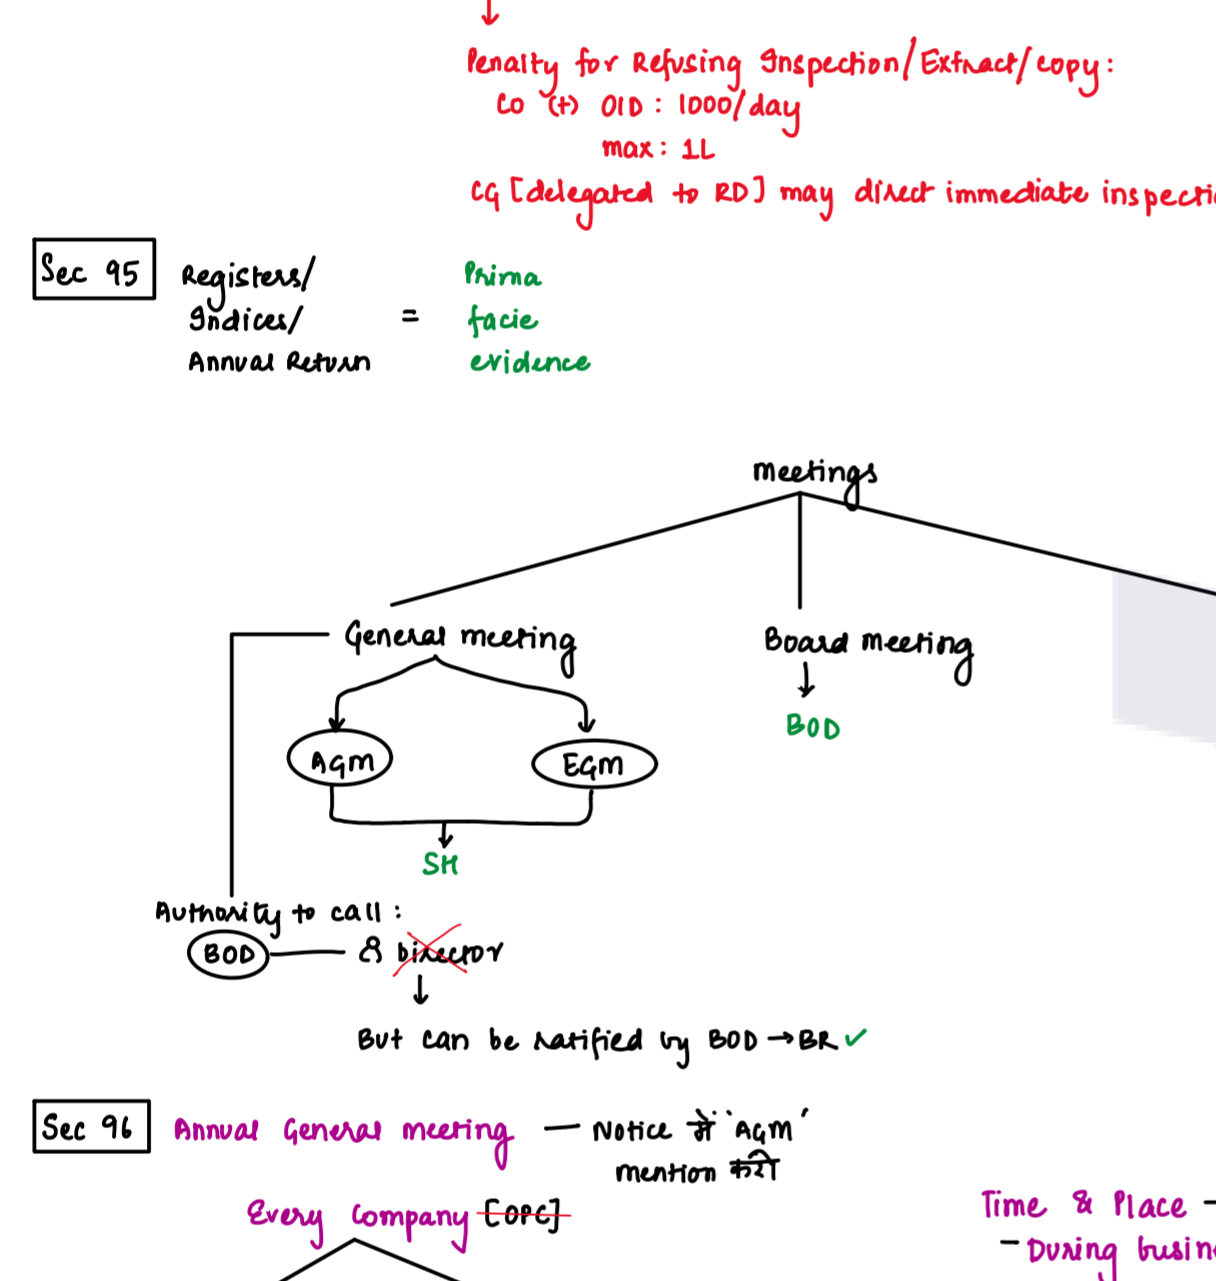 Penalty for Refusing Inspection/Extract/copy:
Co (+) OID : 1000/day
max : 1L
CG [delegated to RD] may direct immediate inspecti
Sec 95
Registers/
Indices/
Annual Return
=
Prima
facie
evidence
meetings
General meeting
Board meeting
BOD
AGM
EGM
SH
Authority to call :
BOD
Director
But can be ratified by BOD → BR ✓
Sec 96
Annual General meeting — Notice में 'AGM'
mention करो
Every Company [OPC]
Time & Place -
- During busin